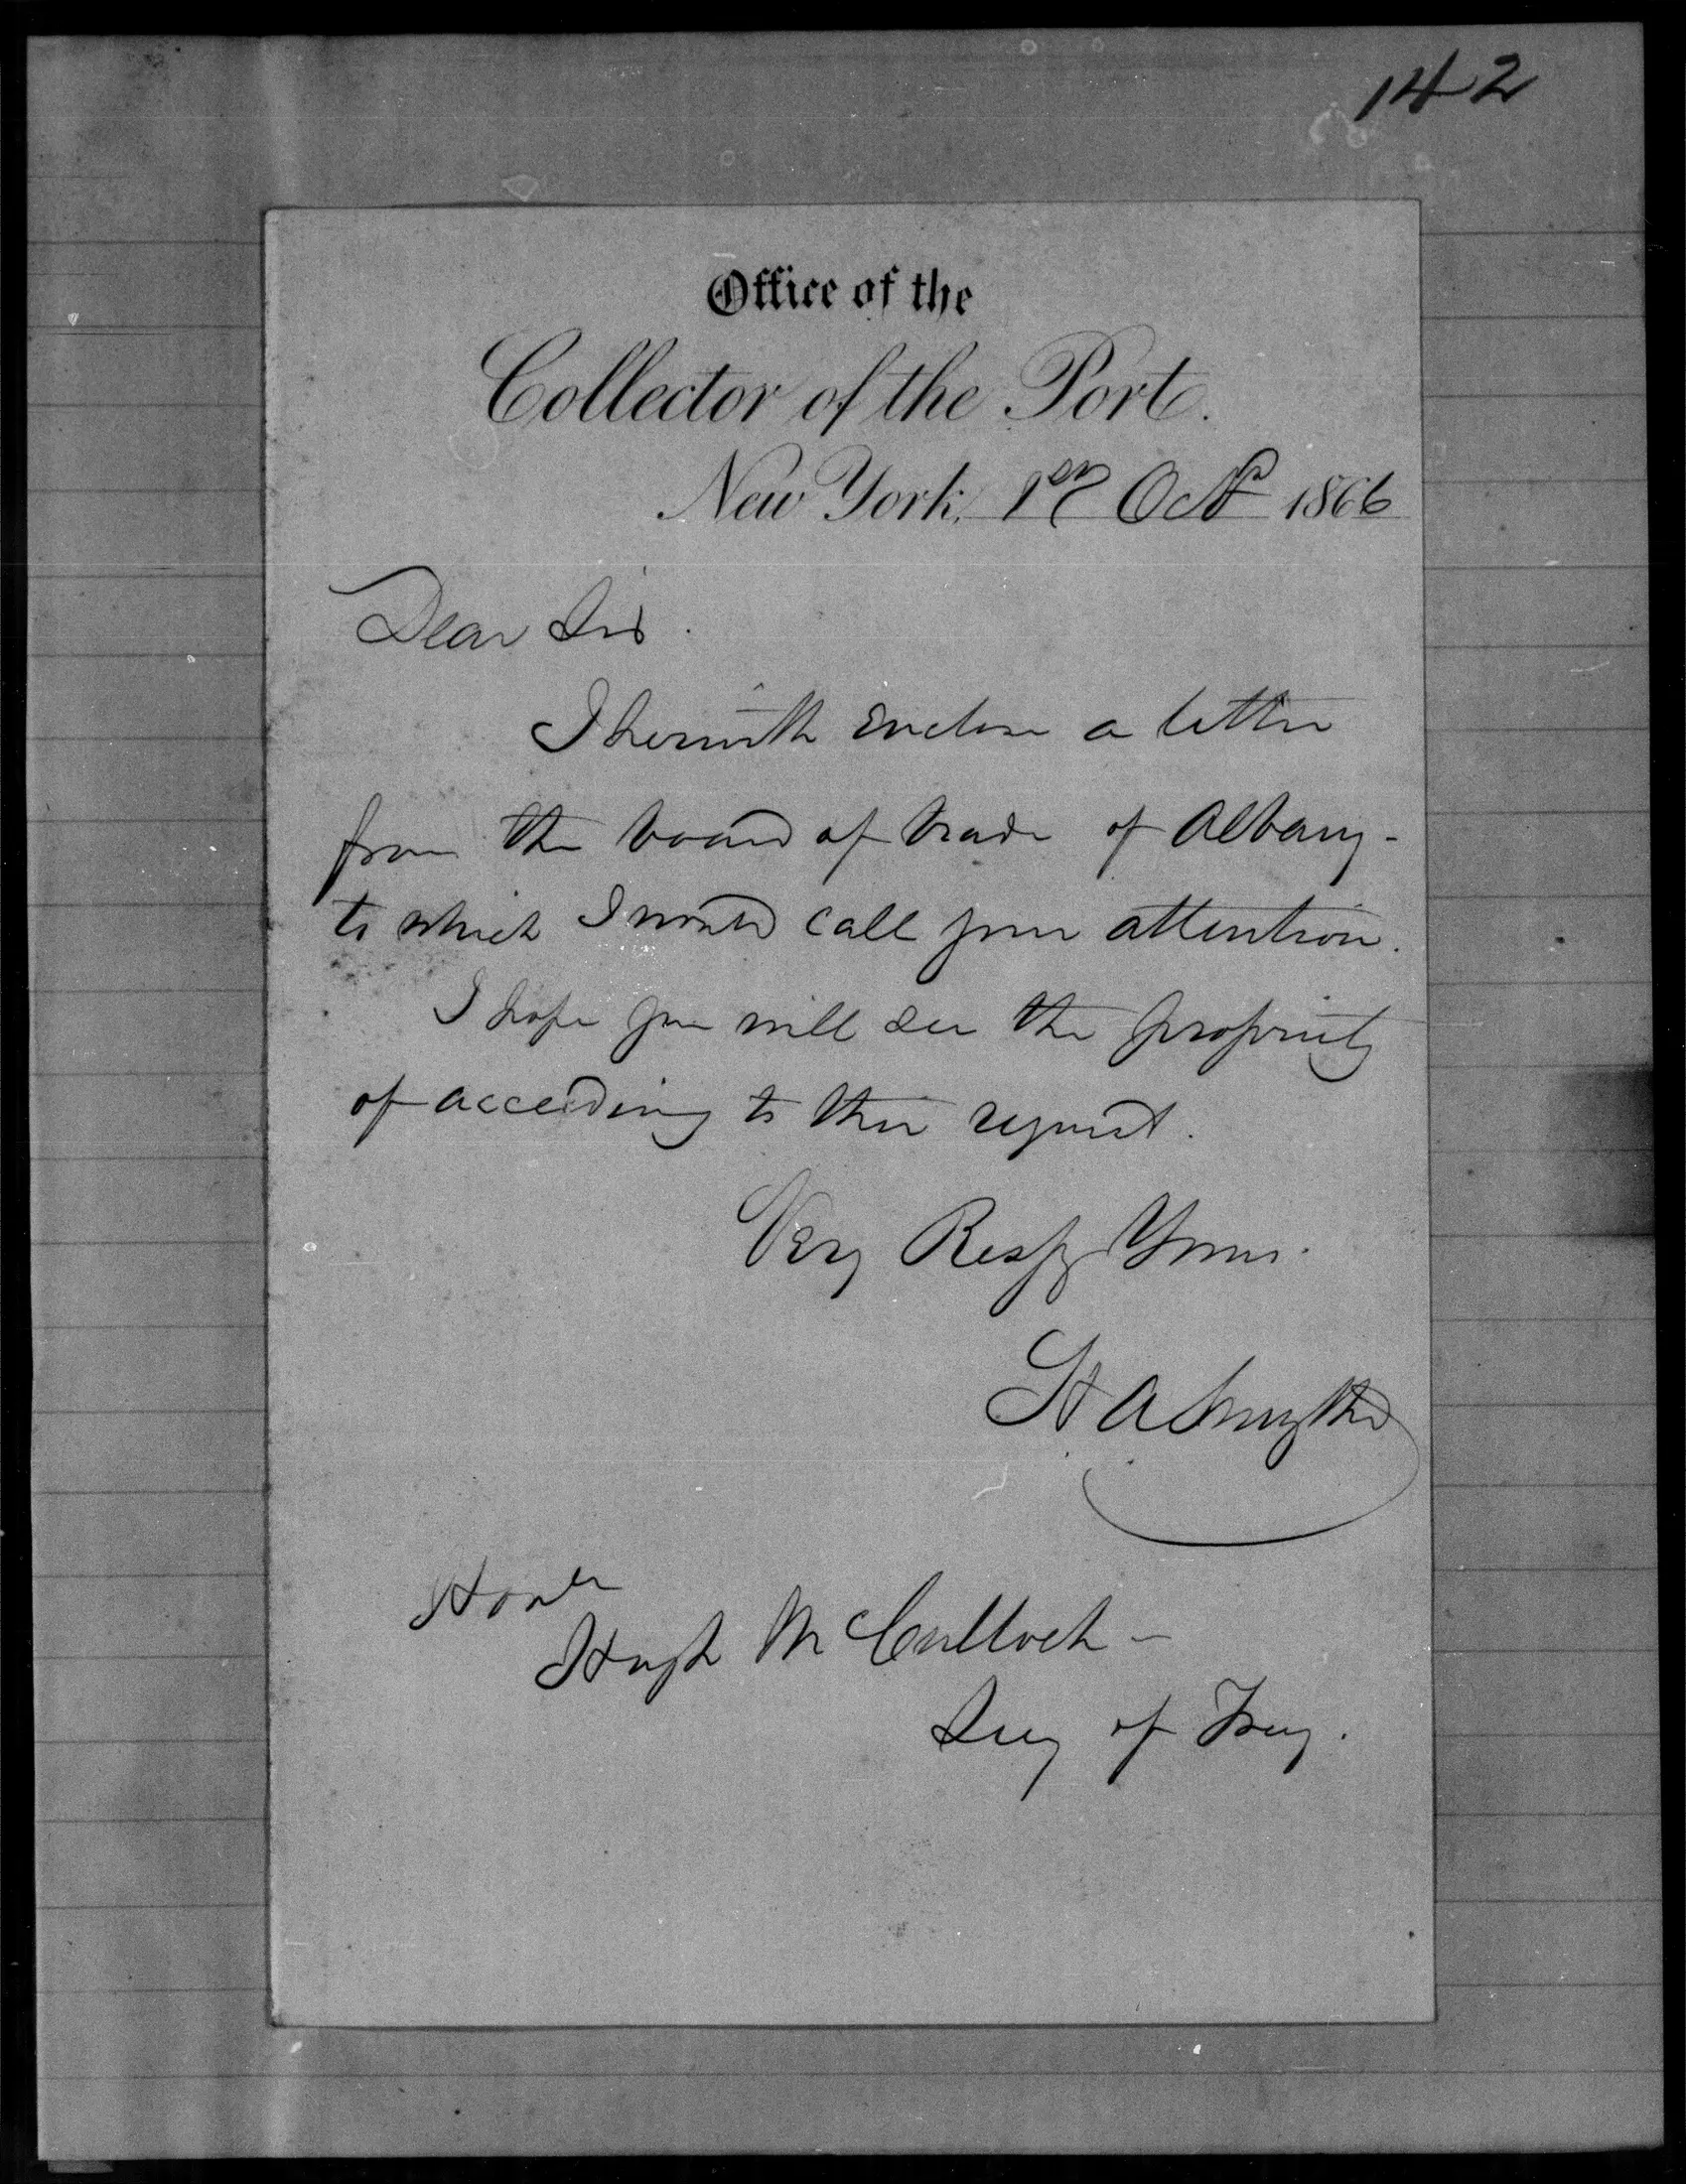 142
Office of the
Collector of the Port.
New York, 1st Octr 1866
Dear Sir.
I herewith enclose a letter
from the board of trade of Albany -
to which I would call your attention.
I hope you will see the propriety
of acceeding to their request.
Very Respy Yours.
H A Smythe
Honle
Hugh McCulloch -
Secy of Trey.